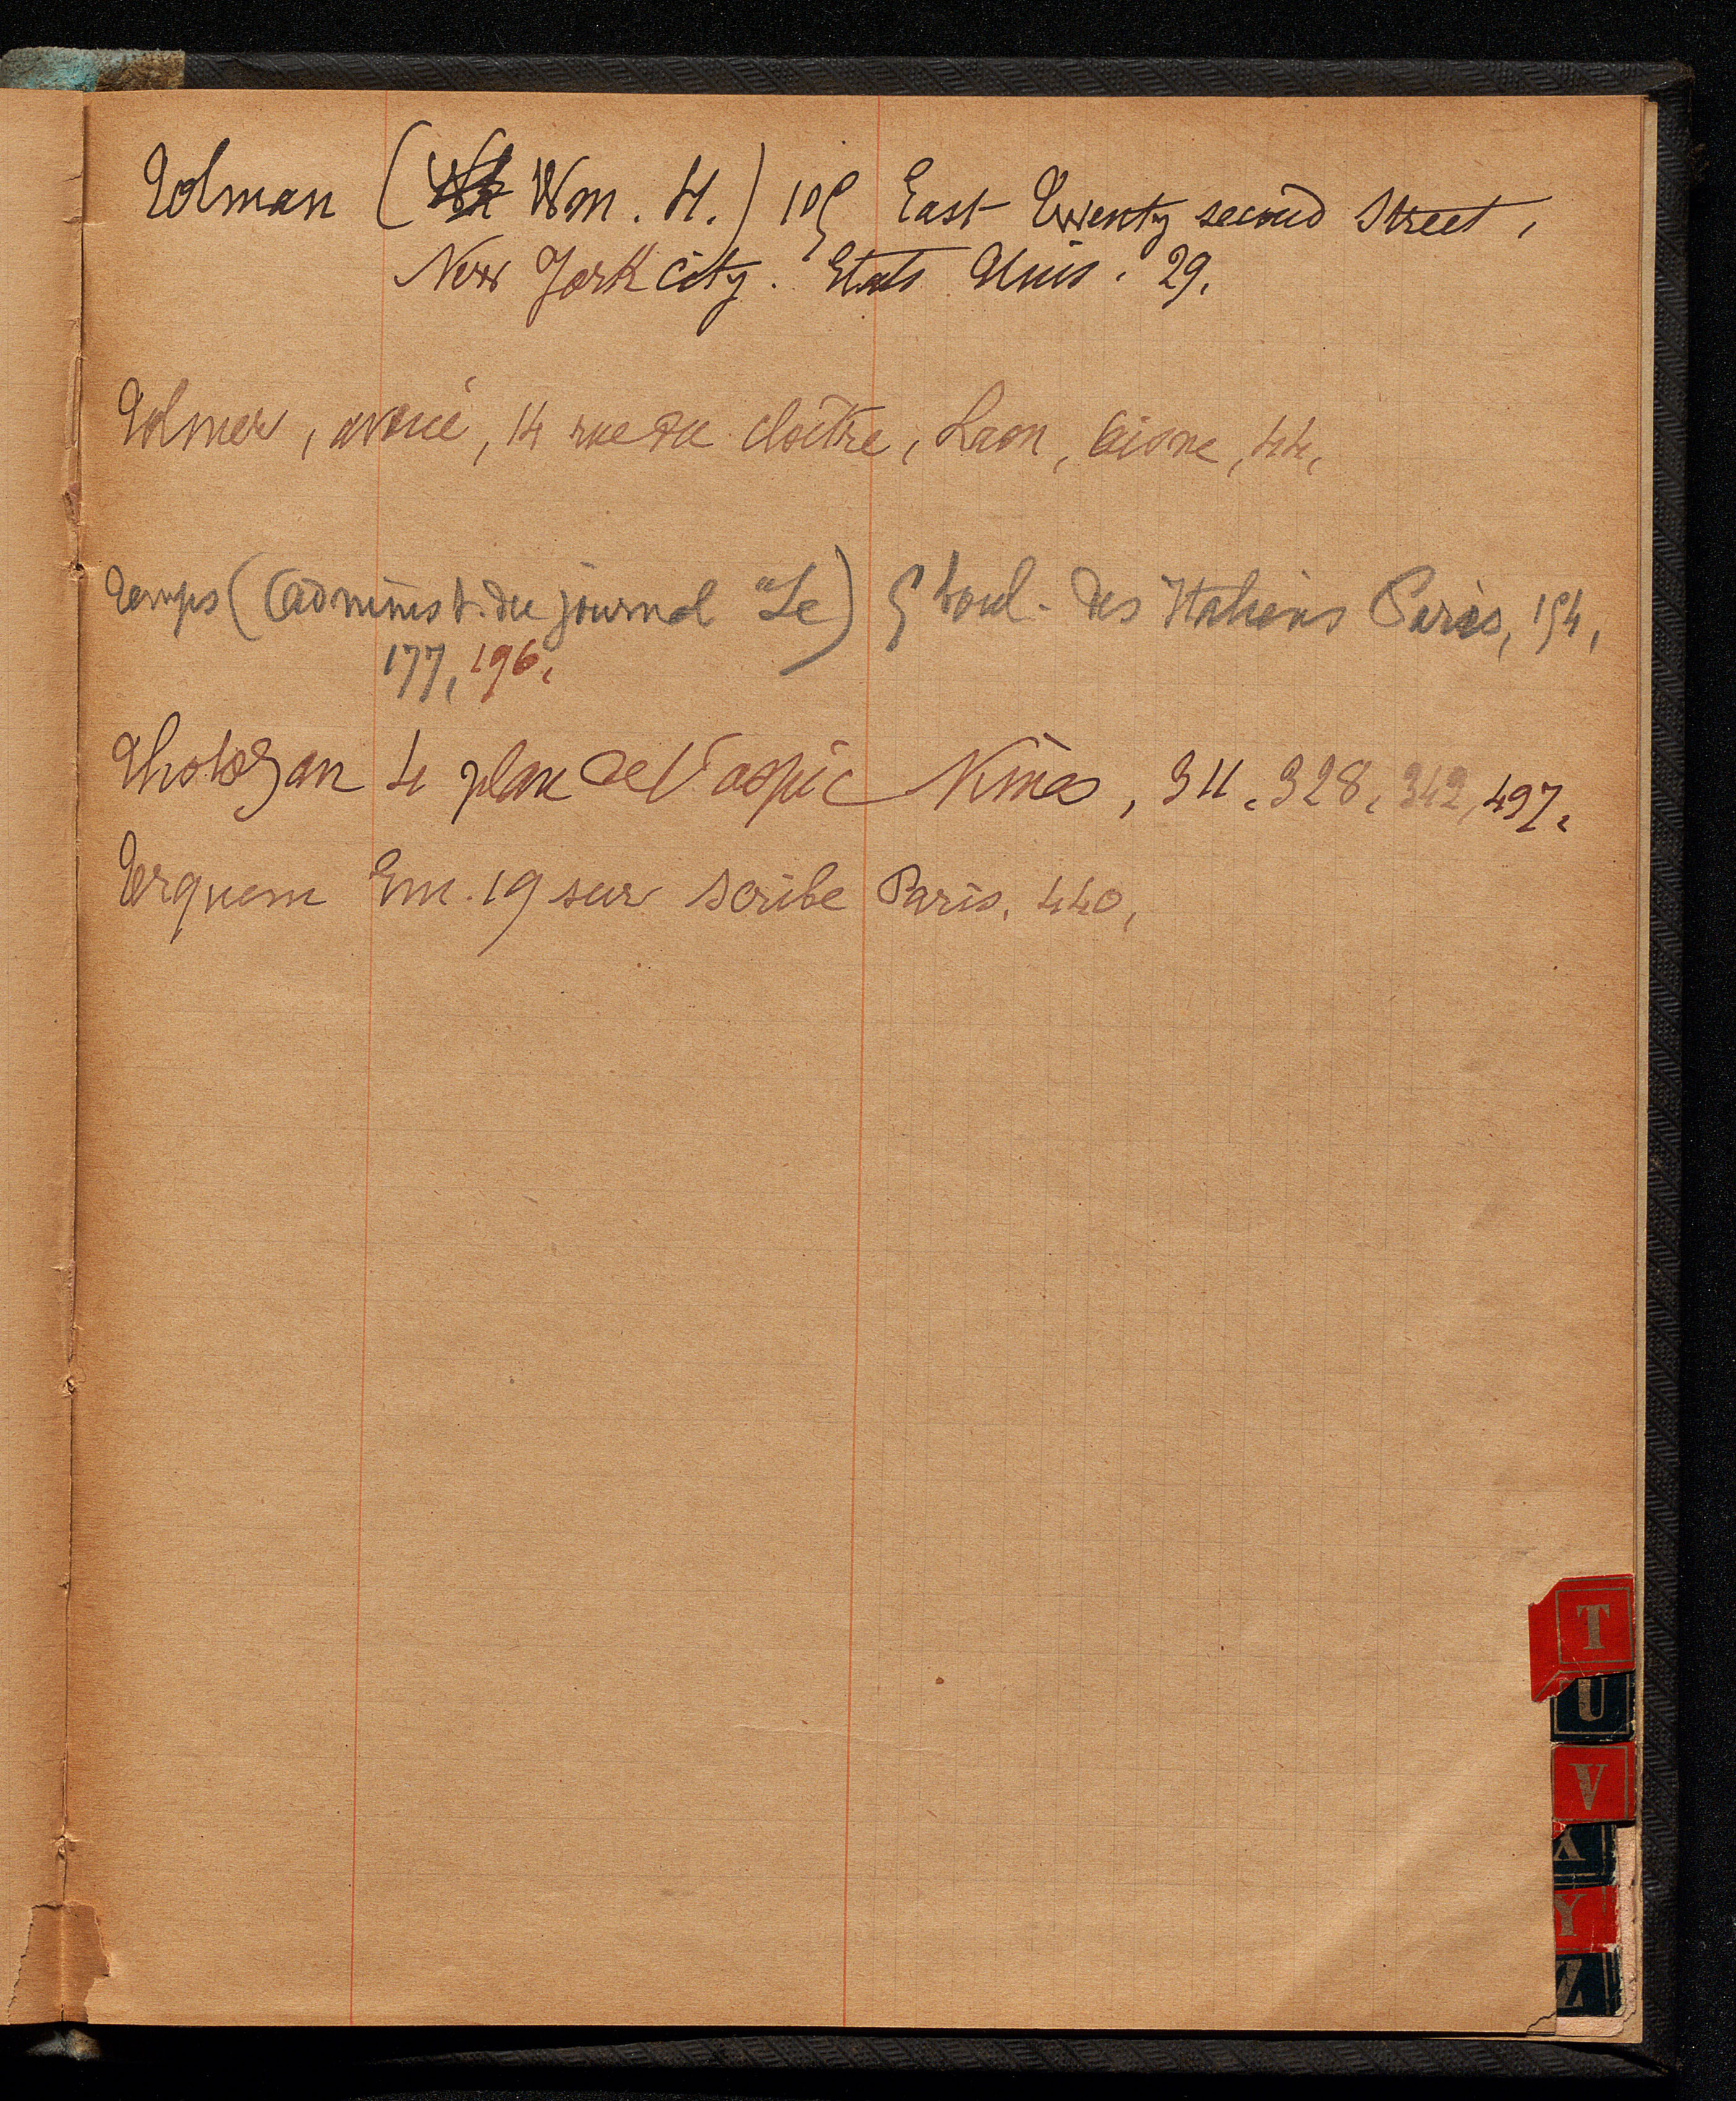 Tolman (Wm. H.) 105 East Twenty second Street,
New York city. Etats Unis. 29.
Tolmer, avoué, 14 rue du cloître, Laon, Aisne, 44,
Temps (Administ. du journal "Le) 5 boul. des Italiens Paris, 154,
177, 196,
Tholozan 4 plan de l'aspic Nîmes, 311, 328, 342, 497,
Terquem Em. 19 sur Scribe Paris, 440,
T
U
V
X
Y
Z